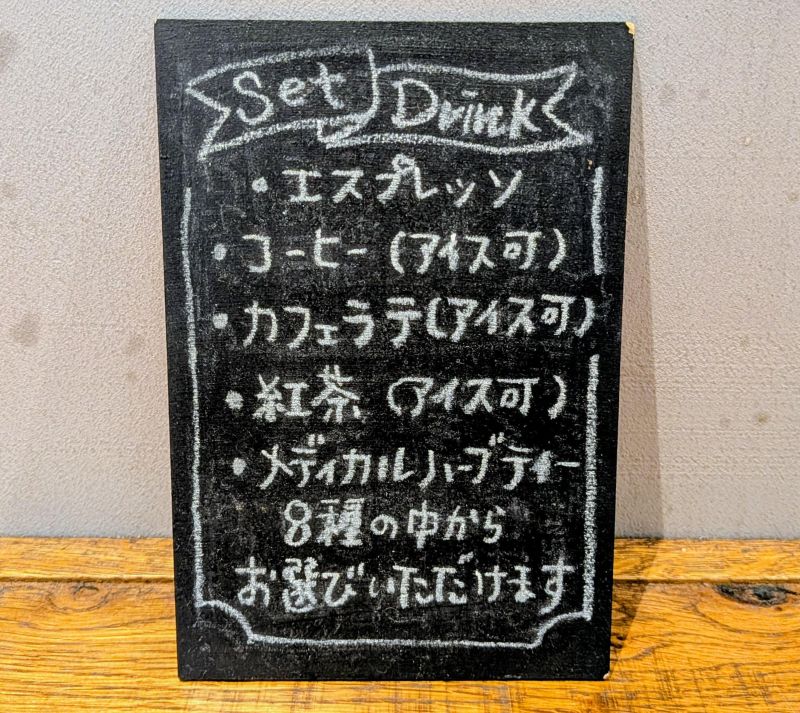 Set Drink
・エスプレッソ
・コーヒー(アイス可)
・カフェラテ(アイス可)
・紅茶(アイス可)
・メディカルハーブティー
8種の中から
お選びいただけます